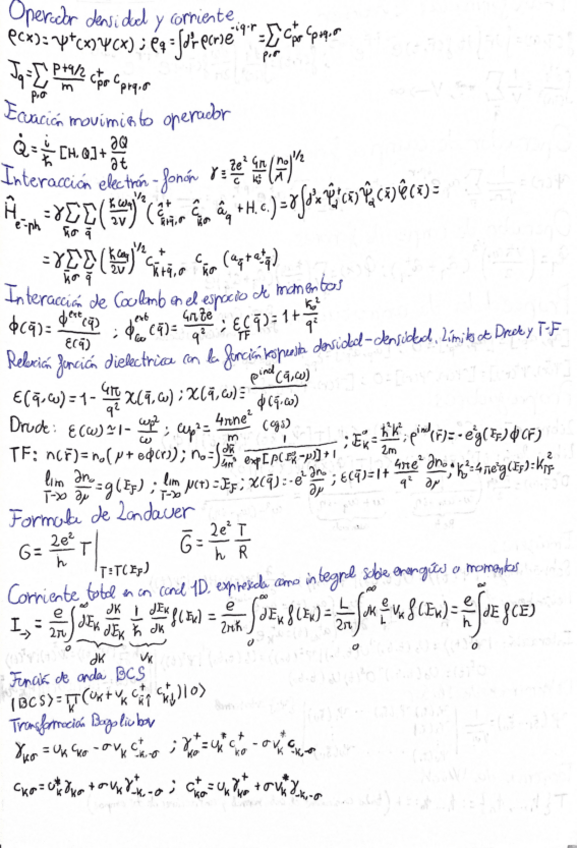 Operador densidad y corriente
ρ(x)=Ψ⁺(x)Ψ(x) ; ρq=∫d³r ρ(r)e^(-iq·r)=∑_(p,σ) c⁺_(pσ) c_(p+q,σ)
J_q=∑_(p,σ) (p+q/2)/m c⁺_(pσ) c_(p+q,σ)
Ecuación movimiento operador
Q̇=i/ħ [H,Q]+∂Q/∂t
Interacción electrón-fonón γ≡ (4π/k₀²)
Ĥ_(e-ph)=γ∑_(k̄σ)∑_(q̄)(ħω_q/2V)^(1/2)(ĉ⁺_(k̄+q̄,σ) ĉ_(k̄σ) â_q+H.c.)=γ∫d³x Ψ̂⁺_α(x̄)Ψ̂_α(x̄)φ̂(x̄)=
=γ∑_(k̄σ)∑_(q̄)(ħω_q/2V)^(1/2) c⁺_(k̄+q̄,σ) c_(k̄σ) (a_q+a⁺_(-q̄))
Interacción de Coulomb en el espacio de momentos
ϕ(q̄)=ϕ^(ext)(q̄)/ε(q̄) ; ϕ^(ext)(q̄)=4πZe/q² ; ε_(TF)(q̄)=1+k₀²/q²
Relación función dieléctrica con la función respuesta densidad-densidad. Límites de Drude y T-F
ε(q̄,ω)=1-4π/q² χ(q̄,ω) ; χ(q̄,ω)=ρ^(ind)(q̄,ω)/ϕ(q̄,ω)
Drude: ε(ω)≃1-ωp²/ω ; ωp²=4πne²/m (cgs)
TF: n(r̄)=n₀(μ+eϕ(r)) ; n₀=∫dk̄/4π³ 1/(exp[β(E⁰_k-μ)]+1) ; E⁰_k=ħ²k²/2m ; ρ^(ind)(r̄)=-e²g(E_F)ϕ(r̄)
lim_(T→0) ∂n₀/∂μ=g(E_F) ; lim_(T→0) μ(T)=E_F ; χ(q̄)=-e² ∂n₀/∂μ ; ε(q̄)=1+4πe²/q² ∂n₀/∂μ ; k₀²=4πe²g(E_F)=k²_(TF)
Formula de Landauer
G=2e²/h T|_(T=T(E_F)) G̅=2e²/h T/R
Corriente total en un canal 1D. expresada como integral sobre energías o momentos
I_→=e/2π ∫₀^∞ dE_k dk/dE_k 1/ħ dE_k/dk f(E_k)=e/2πħ ∫₀^∞ dE_k f(E_k)=L/2π ∫₀^∞ dk e/L v_k f(E_k)=e/h ∫₀^∞ dE f(E)
dk v_k
Función de onda BCS
|BCS⟩=∏_k(u_k+v_k c⁺_(k↑) c⁺_(-k↓))|0⟩
Transformación Bogoliubov
γ_(kσ)=u_k c_(kσ)-σv_k c⁺_(-k,-σ) ; γ⁺_(kσ)=u*_k c⁺_(kσ)-σv*_k c_(-k,-σ)
c_(kσ)=u*_k γ_(kσ)+σv_k γ⁺_(-k,-σ) ; c⁺_(kσ)=u_k γ⁺_(kσ)+σv*_k γ_(-k,-σ)